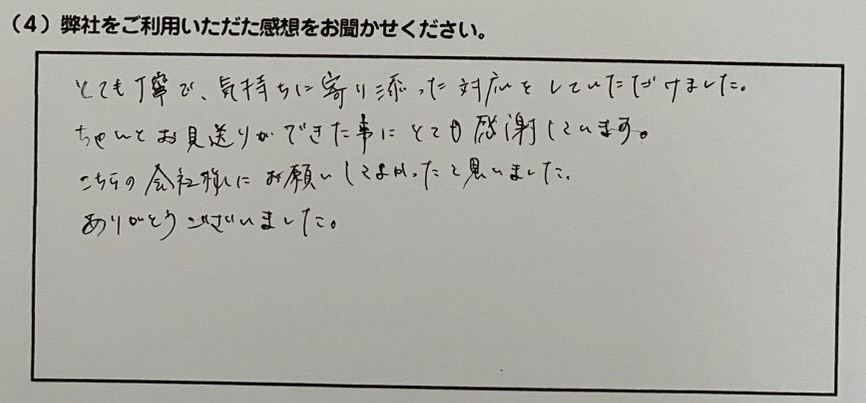 （4）弊社をご利用いただた感想をお聞かせください。
とても丁寧で、気持ちに寄り添った対応をしていただけました。
ちゃんとお見送りができた事にとても感謝しています。
こちらの会社様にお願いしてよかったと思いました。
ありがとうございました。